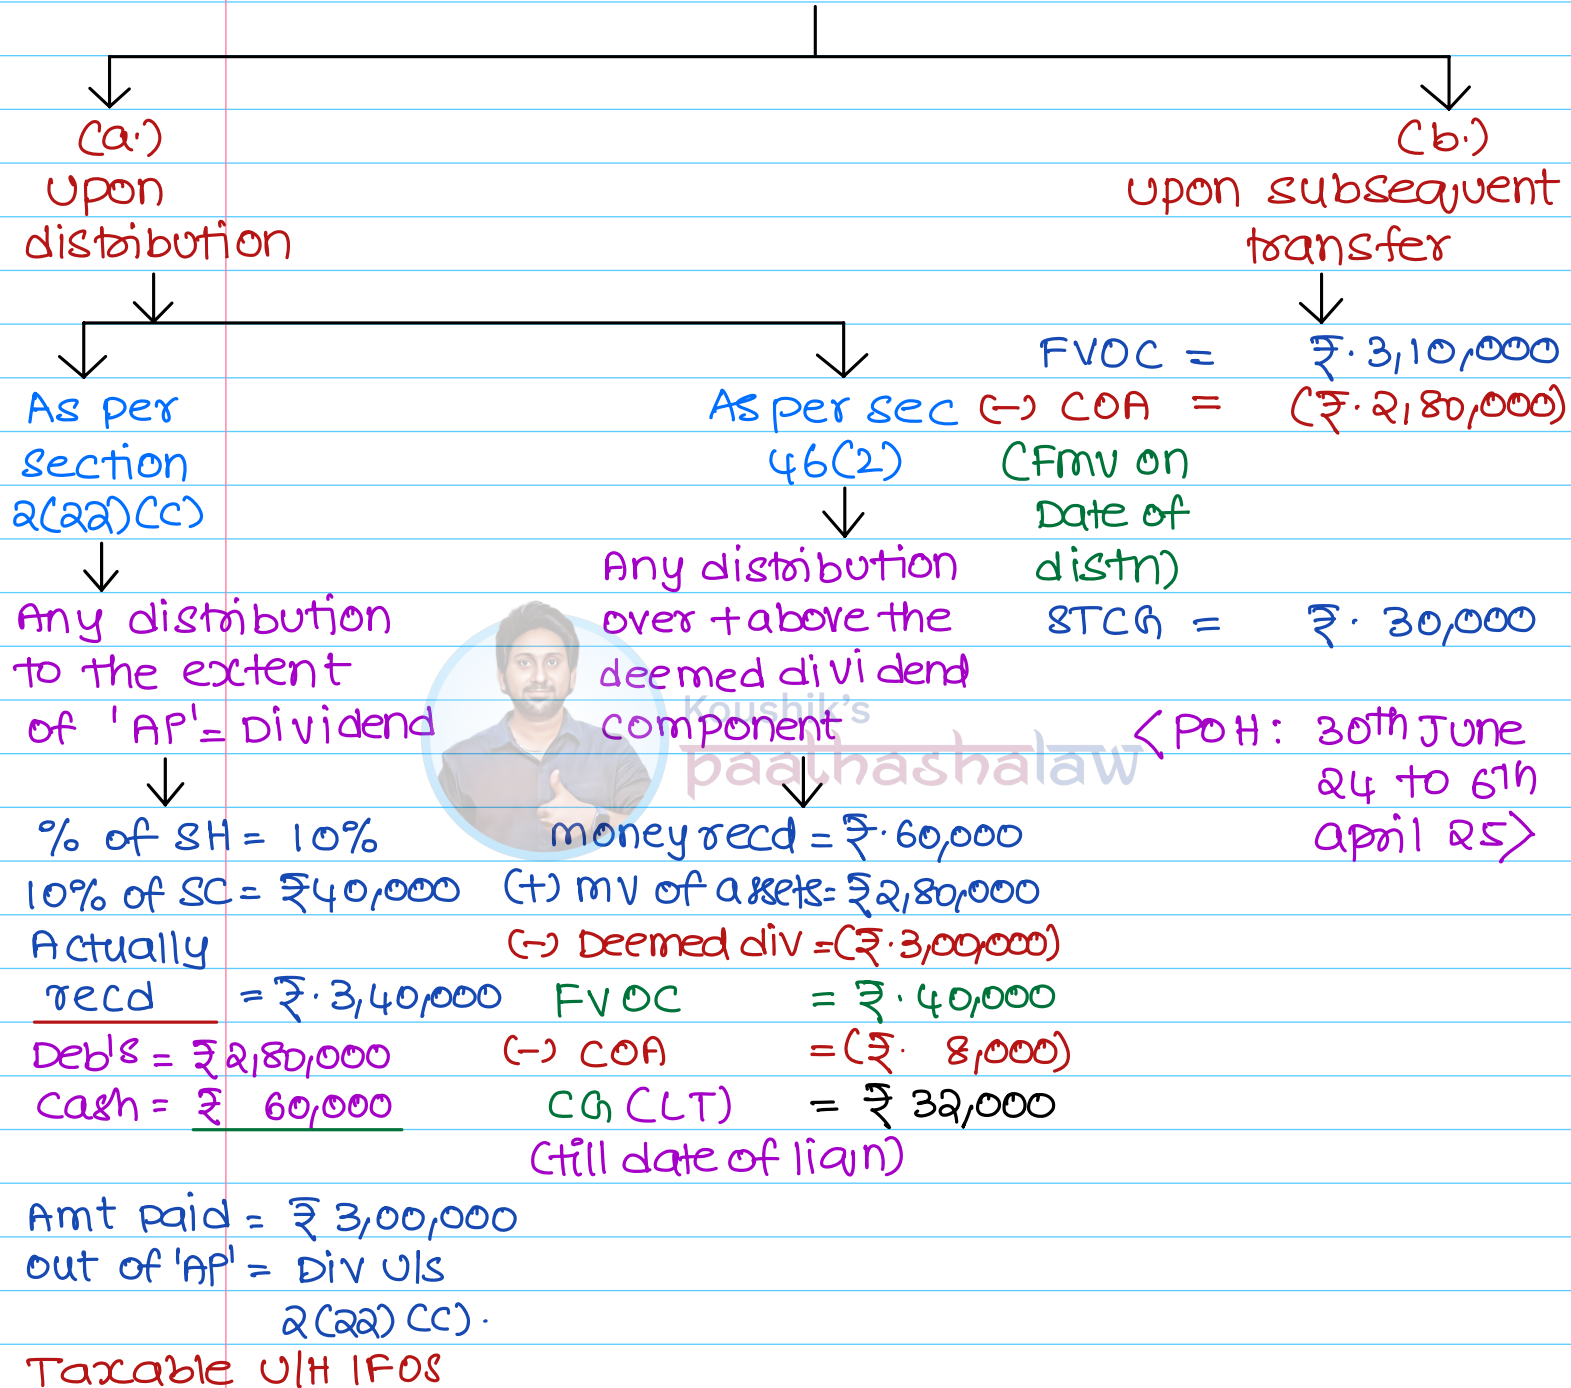 (a.)
upon
distribution
(b.)
upon subsequent
transfer
As per
section
2(22)(c)
Any distribution
to the extent
of 'AP' = Dividend
% of SH = 10%
10% of SC = ₹40,000
Actually
recd = ₹.3,40,000
Deb's = ₹2,80,000
Cash = ₹ 60,000
Amt paid = ₹3,00,000
out of 'AP' = Div U/S
2(22)(c).
Taxable U/H IFOS
As per sec
46(2)
Any distribution
over + above the
deemed dividend
component
money recd = ₹.60,000
(+) mv of assets = ₹2,80,000
(-) Deemed div = (₹.3,00,000)
FVOC = ₹.40,000
(-) COA = (₹. 8,000)
CG (LT) = ₹ 32,000
(till date of liqn)
FVOC = ₹.3,10,000
(-) COA = (₹.2,80,000)
(Fmv on
Date of
distn)
STCG = ₹. 30,000
<POH: 30th June
24 to 6th
April 25>
Koushik's
paathashalaw